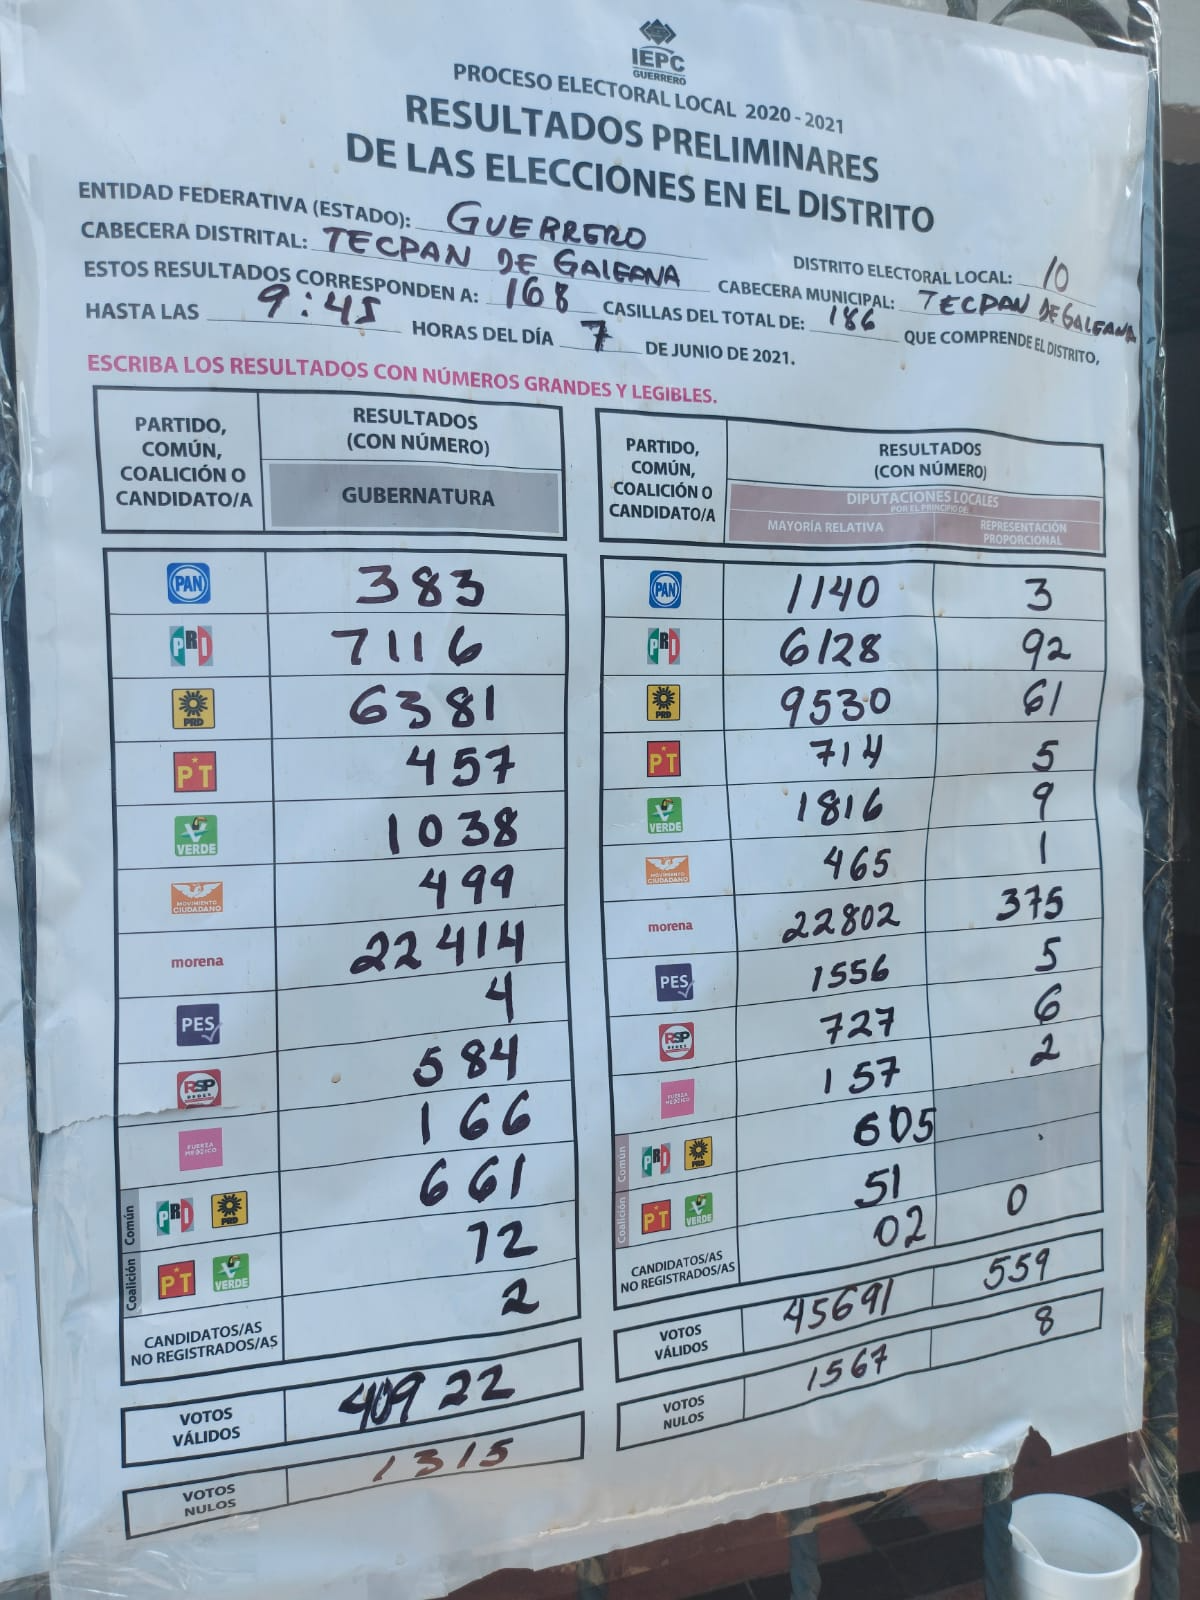 IEPC
GUERRERO
PROCESO ELECTORAL LOCAL 2020 - 2021
RESULTADOS PRELIMINARES
DE LAS ELECCIONES EN EL DISTRITO
ENTIDAD FEDERATIVA (ESTADO): GUERRERO
CABECERA DISTRITAL: TECPAN DE GALEANA DISTRITO ELECTORAL LOCAL: 10
ESTOS RESULTADOS CORRESPONDEN A: 168 CASILLAS DEL TOTAL DE: 186 CABECERA MUNICIPAL: TECPAN DE GALEANA
HASTA LAS 9:45 HORAS DEL DÍA 7 DE JUNIO DE 2021. QUE COMPRENDE EL DISTRITO,
ESCRIBA LOS RESULTADOS CON NÚMEROS GRANDES Y LEGIBLES.
PARTIDO,
COMÚN,
COALICIÓN O
CANDIDATO/A
RESULTADOS
(CON NÚMERO)
GUBERNATURA
PAN 383
PRI 7116
PRD 6381
PT 457
VERDE 1038
MOVIMIENTO CIUDADANO 499
morena 22414
PES 4
RSP REDES 584
FUERZA MÉXICO 166
Común PRI PRD 661
Coalición PT VERDE 72
CANDIDATOS/AS
NO REGISTRADOS/AS 2
VOTOS
VÁLIDOS 40922
VOTOS
NULOS 1315
PARTIDO,
COMÚN,
COALICIÓN O
CANDIDATO/A
RESULTADOS
(CON NÚMERO)
DIPUTACIONES LOCALES
POR EL PRINCIPIO DE:
MAYORÍA RELATIVA REPRESENTACIÓN
PROPORCIONAL
PAN 1140 3
PRI 6128 92
PRD 9530 61
PT 714 5
VERDE 1816 9
MOVIMIENTO CIUDADANO 465 1
morena 22802 375
PES 1556 5
RSP REDES 727 6
FUERZA MÉXICO 157 2
Común PRI PRD 605
Coalición PT VERDE 51
CANDIDATOS/AS
NO REGISTRADOS/AS 02 0
VOTOS
VÁLIDOS 45691 559
VOTOS
NULOS 1567 8